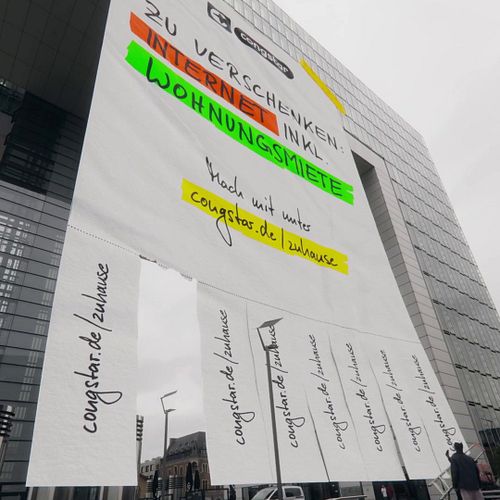 congstar
ZU VERSCHENKEN:
INTERNET INKL.
WOHNUNGSMIETE
Mach mit unter
congstar.de/zuhause
congstar.de/zuhause
congstar.de/zuhause
congstar.de/zuhause
congstar.de/zuhause
congstar.de/zuhause
congstar.de/zuhause
congstar.de/zuhause